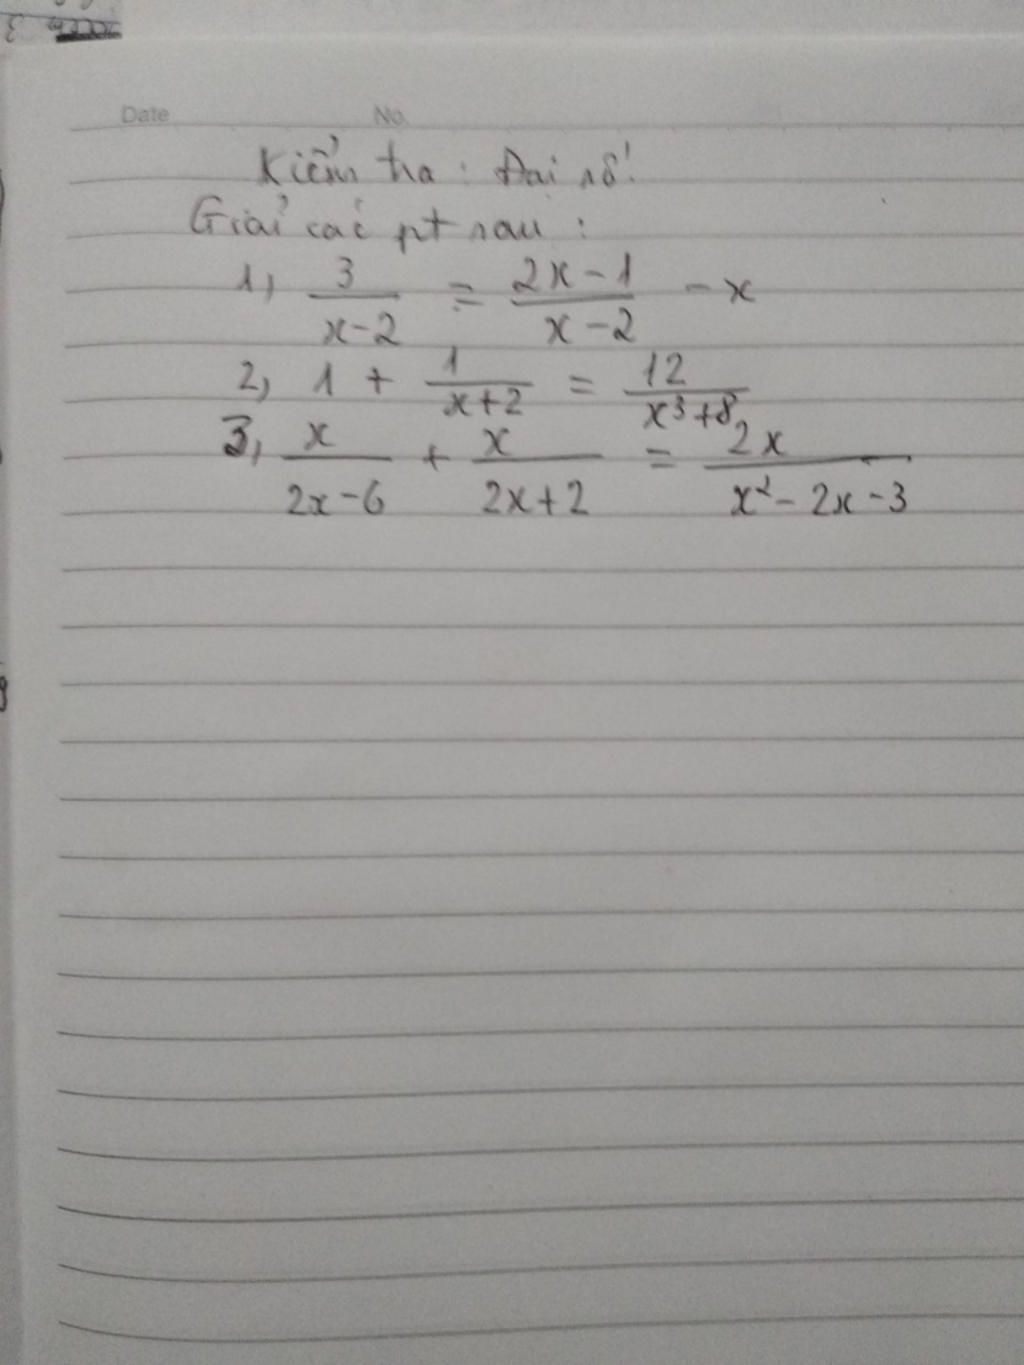 Date No.
Kiểm tra : Đại số
Giải các pt sau :
1, 3/(x-2) = (2x-1)/(x-2) - x
2, 1 + 1/(x+2) = 12/(x³+8)
3, x/(2x-6) + x/(2x+2) = 2x/(x²-2x-3)